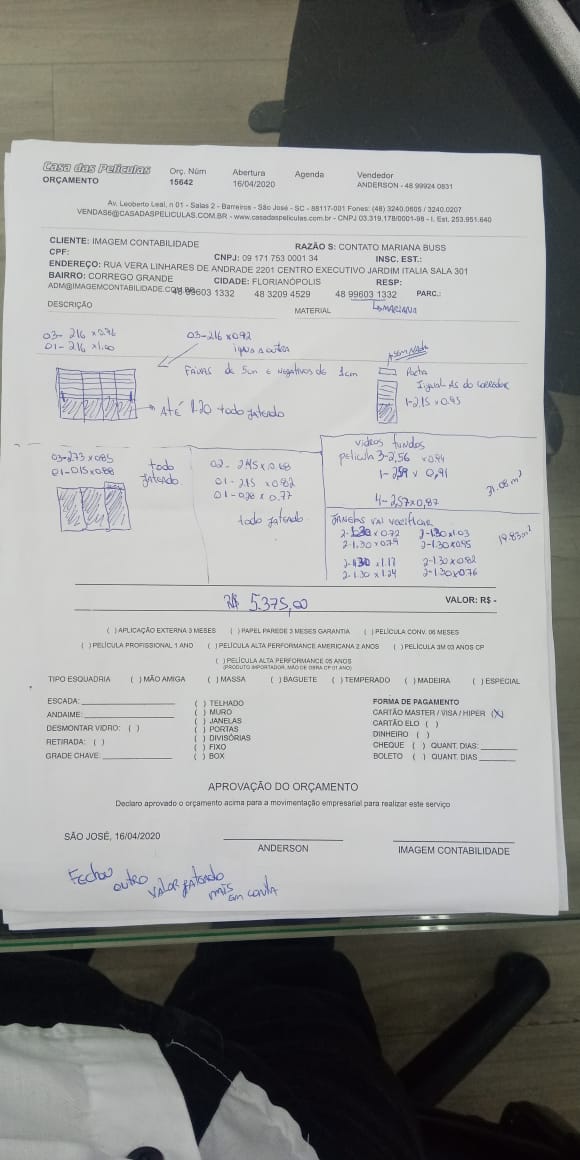 Casa das Películas Orç. Núm Abertura Agenda Vendedor
ORÇAMENTO 15642 16/04/2020 ANDERSON - 48 99924 0831
Av. Leoberto Leal, n 01 - Salas 2 - Barreiros - São José - SC - 88117-001 Fones: (48) 3240.0605 / 3240.0207
VENDAS6@CASADASPELICULAS.COM.BR - www.casadaspeliculas.com.br - CNPJ 03.319.178/0001-98 - I. Est. 253.951.640
CLIENTE: IMAGEM CONTABILIDADE RAZÃO S: CONTATO MARIANA BUSS
CPF: CNPJ: 09 171 753 0001 34 INSC. EST.:
ENDEREÇO: RUA VERA LINHARES DE ANDRADE 2201 CENTRO EXECUTIVO JARDIM ITALIA SALA 301
BAIRRO: CORREGO GRANDE CIDADE: FLORIANÓPOLIS RESP:
ADM@IMAGEMCONTABILIDADE.COM.BR 48 99603 1332 48 3209 4529 48 99603 1332 PARC.:
DESCRIÇÃO MATERIAL MARIANA
03- 216 x 0.96 03-216 x 0.92
01- 216 x 1.00
Faixas de 5cm e negativos de 1cm
Porta
1-2,15 x 0.95
Até 1.20 todo jateado
03-273 x 085
01-015 x 088
todo jateado
01-2.15 x 0.82
todo jateado
vidros fundos
pelicula 3-2,56 x 0.94
1-259 x 0,91
4-257 x 0,87
31.08 m²
JANELAS VAI VERIFICAR
2-1.30 x 0.72 2-1.30 x 1.03
2-1.30 x 0.79 2-1.30 x 0.95
2-1.30 x 1.17 2-1.30 x 0.82
2-1.30 x 1.24 2-1.30 x 0.76
19.83 m²
R$ 5.375,00 VALOR: R$ -
( ) APLICAÇÃO EXTERNA 3 MESES ( ) PAPEL PAREDE 3 MESES GARANTIA ( ) PELÍCULA CONV. 06 MESES
( ) PELÍCULA PROFISSIONAL 1 ANO ( ) PELÍCULA ALTA PERFORMANCE AMERICANA 2 ANOS ( ) PELÍCULA 3M 03 ANOS CP
( ) PELÍCULA ALTA PERFORMANCE 05 ANOS
(PRODUTO IMPORTADOR, MÃO DE OBRA CP 01 ANO)
TIPO ESQUADRIA ( ) MÃO AMIGA ( ) MASSA ( ) BAGUETE ( ) TEMPERADO ( ) MADEIRA ( ) ESPECIAL
ESCADA: ( ) TELHADO FORMA DE PAGAMENTO
ANDAIME: ( ) MURO CARTÃO MASTER / VISA / HIPER (X)
( ) JANELAS CARTÃO ELO ( )
DESMONTAR VIDRO: ( ) ( ) PORTAS DINHEIRO ( )
RETIRADA: ( ) ( ) DIVISÓRIAS CHEQUE ( ) QUANT. DIAS:
GRADE CHAVE: ( ) FIXO BOLETO ( ) QUANT. DIAS
( ) BOX
APROVAÇÃO DO ORÇAMENTO
Declaro aprovado o orçamento acima para a movimentação empresarial para realizar este serviço
SÃO JOSÉ, 16/04/2020
ANDERSON IMAGEM CONTABILIDADE
Fechou outro valor jateado mais em conta